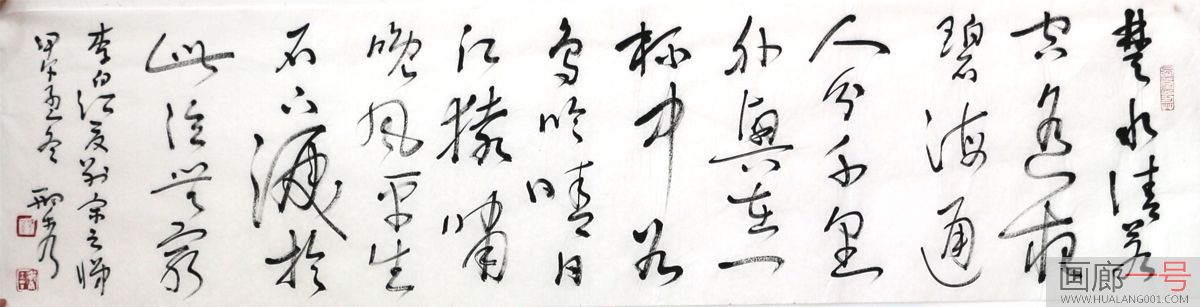 楚水清若
空遥将
碧海通
人分千里
外興在一
杯中谷
鸟吟晴日
江猿嘯
晚风平生
不下淚於
此泣無窮
李白江夏别宋之悌
甲午孟冬
画廊一号
WWW.HUALANG001.COM